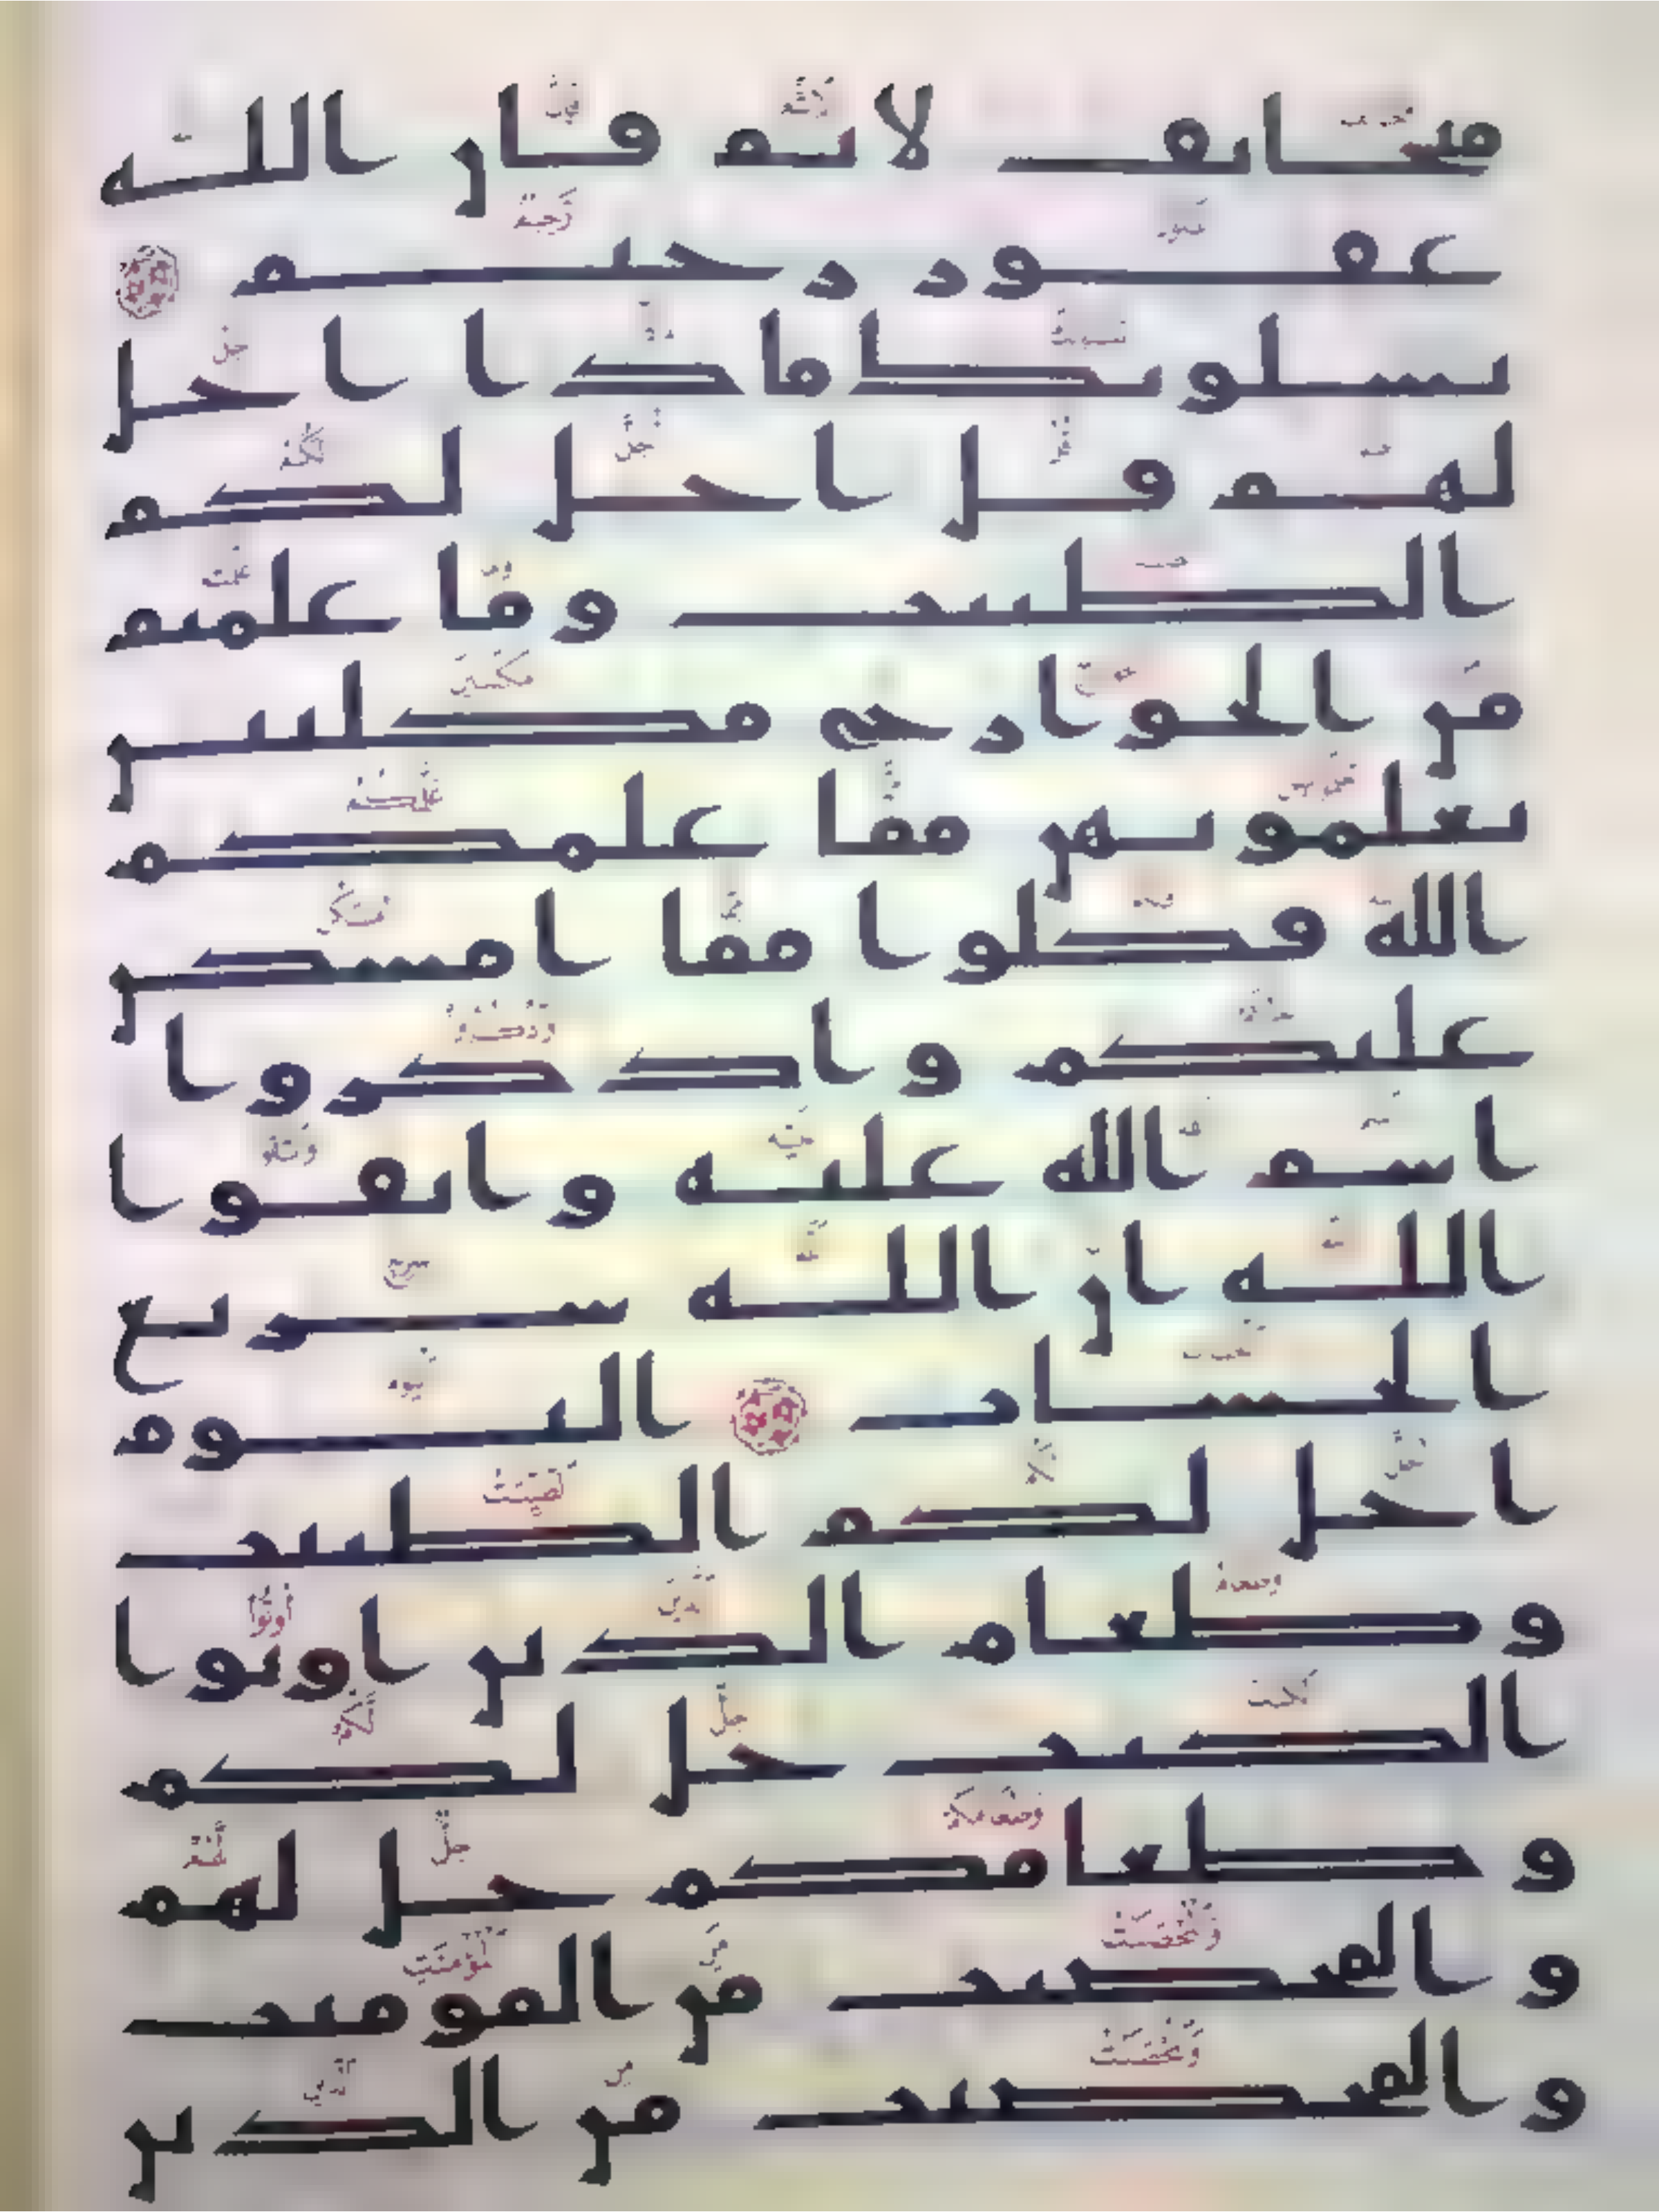 متجانف لاثم فان الله
غفور رحيم
يسلونك ماذا احل
لهم قل احل لكم
الطيبت وما علمتم
من الجوارح مكلبين
تعلمونهن مما علمكم
الله فكلوا مما امسكن
عليكم واذكروا
اسم الله عليه واتقوا
الله ان الله سريع
الحساب اليوم
احل لكم الطيبت
وطعام الذين اوتوا
الكتب حل لكم
وطعامكم حل لهم
والمحصنت من المومنت
والمحصنت من الذين